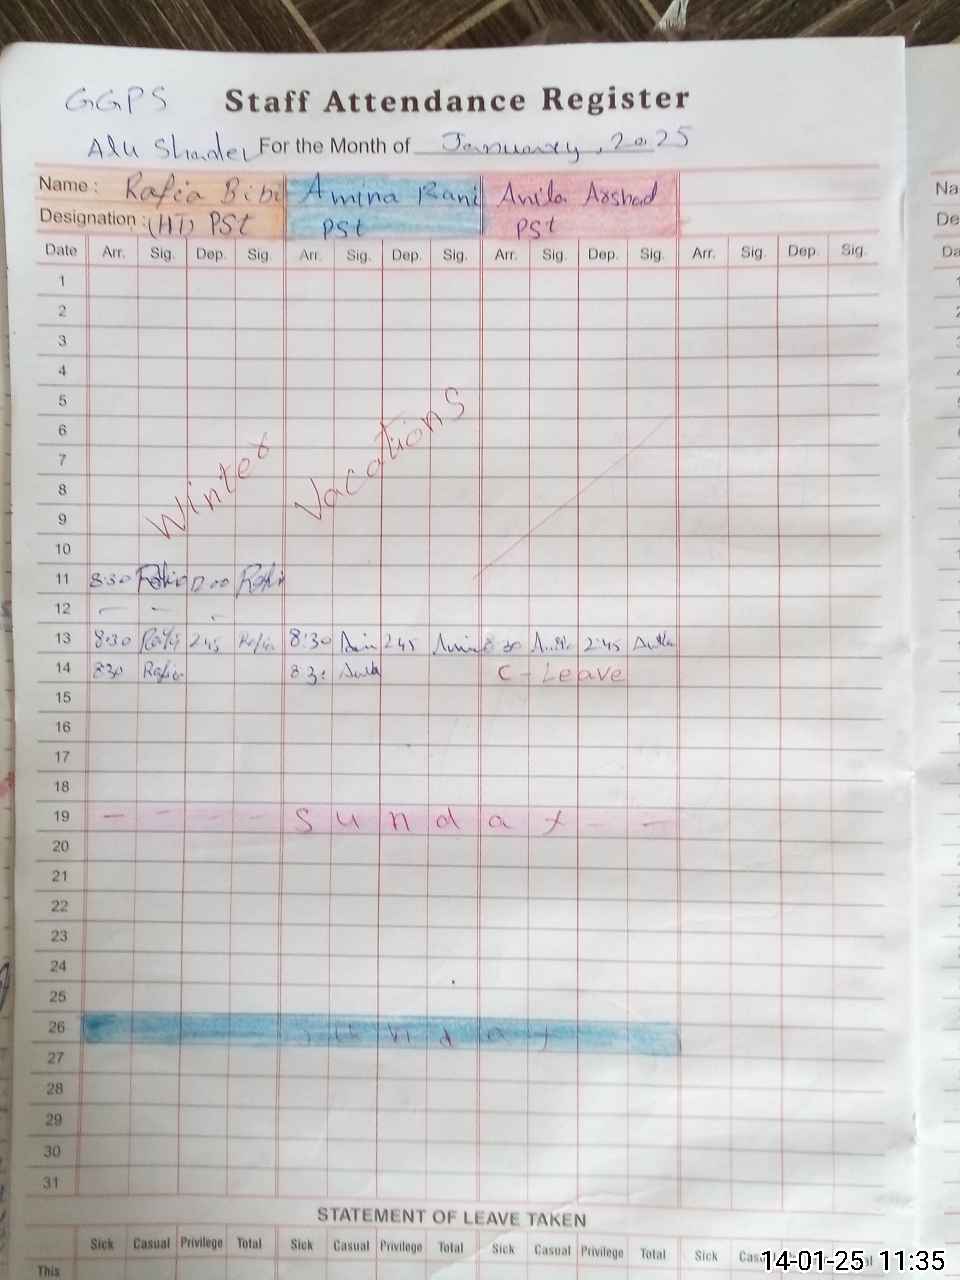 GGPS Staff Attendance Register
For the Month of January, 2025
Name : Rafia Bibi Amina Rani Anila Arshad
Designation : (HT) PSt PSt PSt
Date Arr. Sig. Dep. Sig. Arr. Sig. Dep. Sig. Arr. Sig. Dep. Sig. Arr. Sig. Dep. Sig.
1
2
3
4
5
6
7
8
9
Winter Vacations
10
11 8:30 Rafia 12:00 Rafia
12
13 8:30 Rafia 2:45 Rafia 8:30 2:45 8:30 2:45
14 8:30 Rafia 8:30 C - Leave
15
16
17
18
19 - - - - Sunday - -
20
21
22
23
24
25
26 Sunday
27
28
29
30
31
STATEMENT OF LEAVE TAKEN
Sick Casual Privilege Total Sick Casual Privilege Total Sick Casual Privilege Total Sick
This
14-01-25 11:35